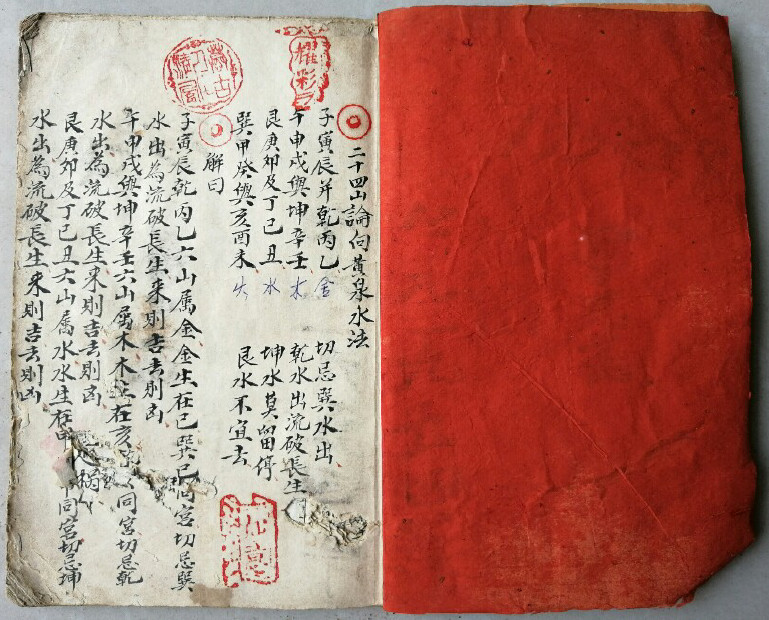 二十四山論向黃泉水法
子寅辰并乾丙乙金 切忌巽水出
午申戌與坤辛壬木 乾水出流破長生
艮庚卯及丁巳丑水 坤水莫留停
巽甲癸與亥酉未火 艮水不宜去
解曰
子寅辰乾丙乙六山属金金生在巳巽巳同宮切忌巽
水出為流破長生来則吉去則凶
午申戌與坤辛壬六山属木木生在亥同宮切忌乾
水出為流破長生来則吉去則凶
艮庚卯及丁巳丑六山属水水生在申同宮切忌坤
水出為流破長生来則吉去則凶
耀彩